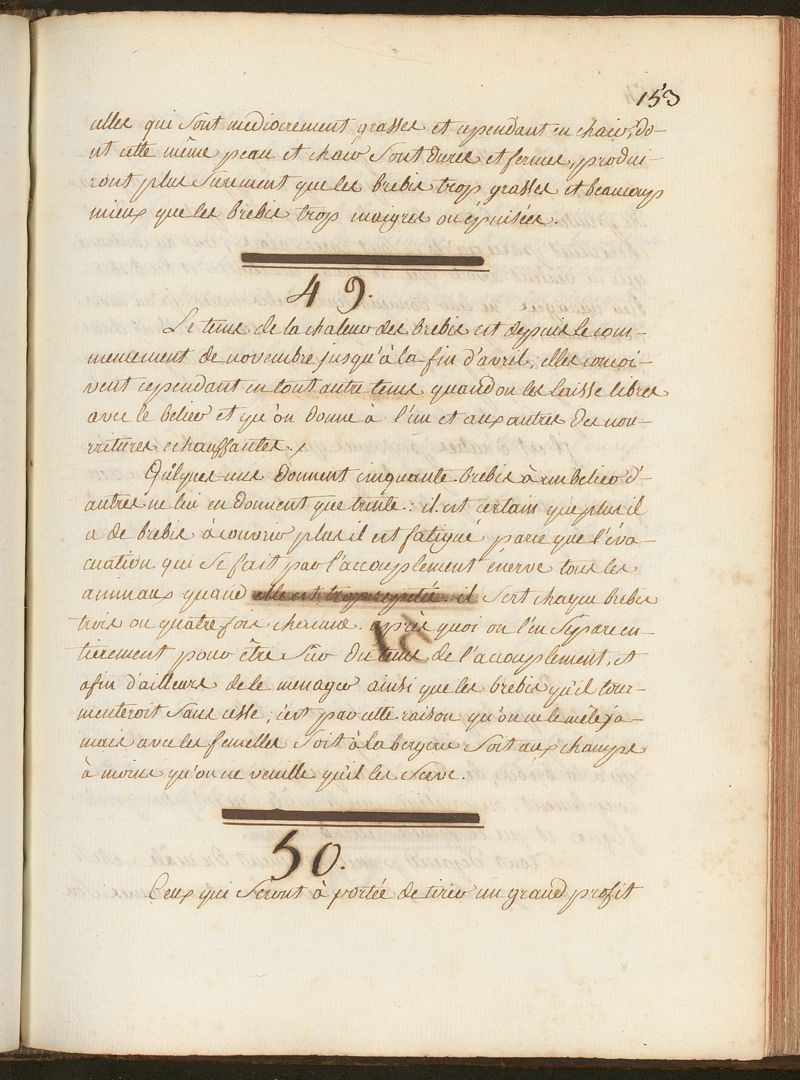 153
celles qui sont mediocrement grasses et cependant en chair, do-
nt cette même peau et chair sont dures et fermes, produi-
ront plus surement que les brebis trop grasses et beaucoup
mieux que les brebis trop maigres ou epuisées.
49.
Le tems de la chaleur des brebis est depuis le com-
mencement de novembre jusqu'à la fin d'avril, elles conçoi-
vent cependant en tout autre tems quand on les laisse libres
avec le belier et qu'on donne à l'un et aux autres des nou-
rritures echauffantes.
Quelques uns donnent cinquante brebis à un belier d'-
autres ne lui en donnent que trente : il est certain que plus il
a de brebis à couvrir plus il est fatigué parce que l'éva-
cuation qui se fait par l'accouplement énerve tous les
animaux quand elle est trop repetée. il sert chaque brebis
trois ou quatre fois chacune. après quoi on l'en sépare en-
tierement pour être sûr du tems de l'accouplement, et
afin d'ailleurs de le menager ainsi que les brebis qu'il tour-
menteroit sans cesse ; c'est par cette raison qu'on ne le mêle ja-
mais avec les femelles soit à la bergerie soit aux champs
à moins qu'on ne veuille qu'il les serve.
50.
Ceux qui seront à portée de tirer un grand profit